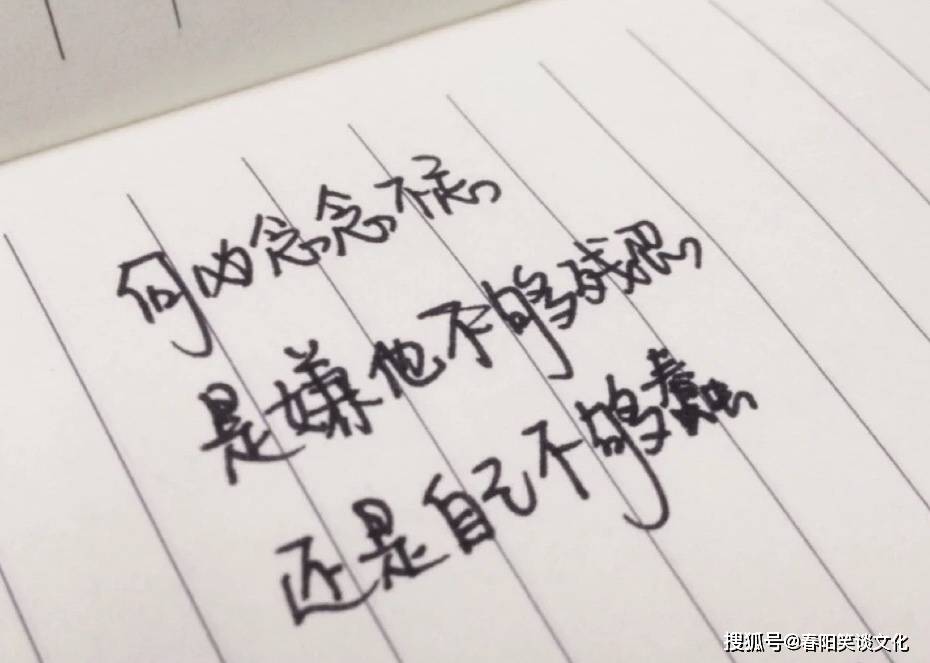 何必念念不忘
是嫌他不够残忍
还是自己不够蠢
搜狐号@春阳笑谈文化